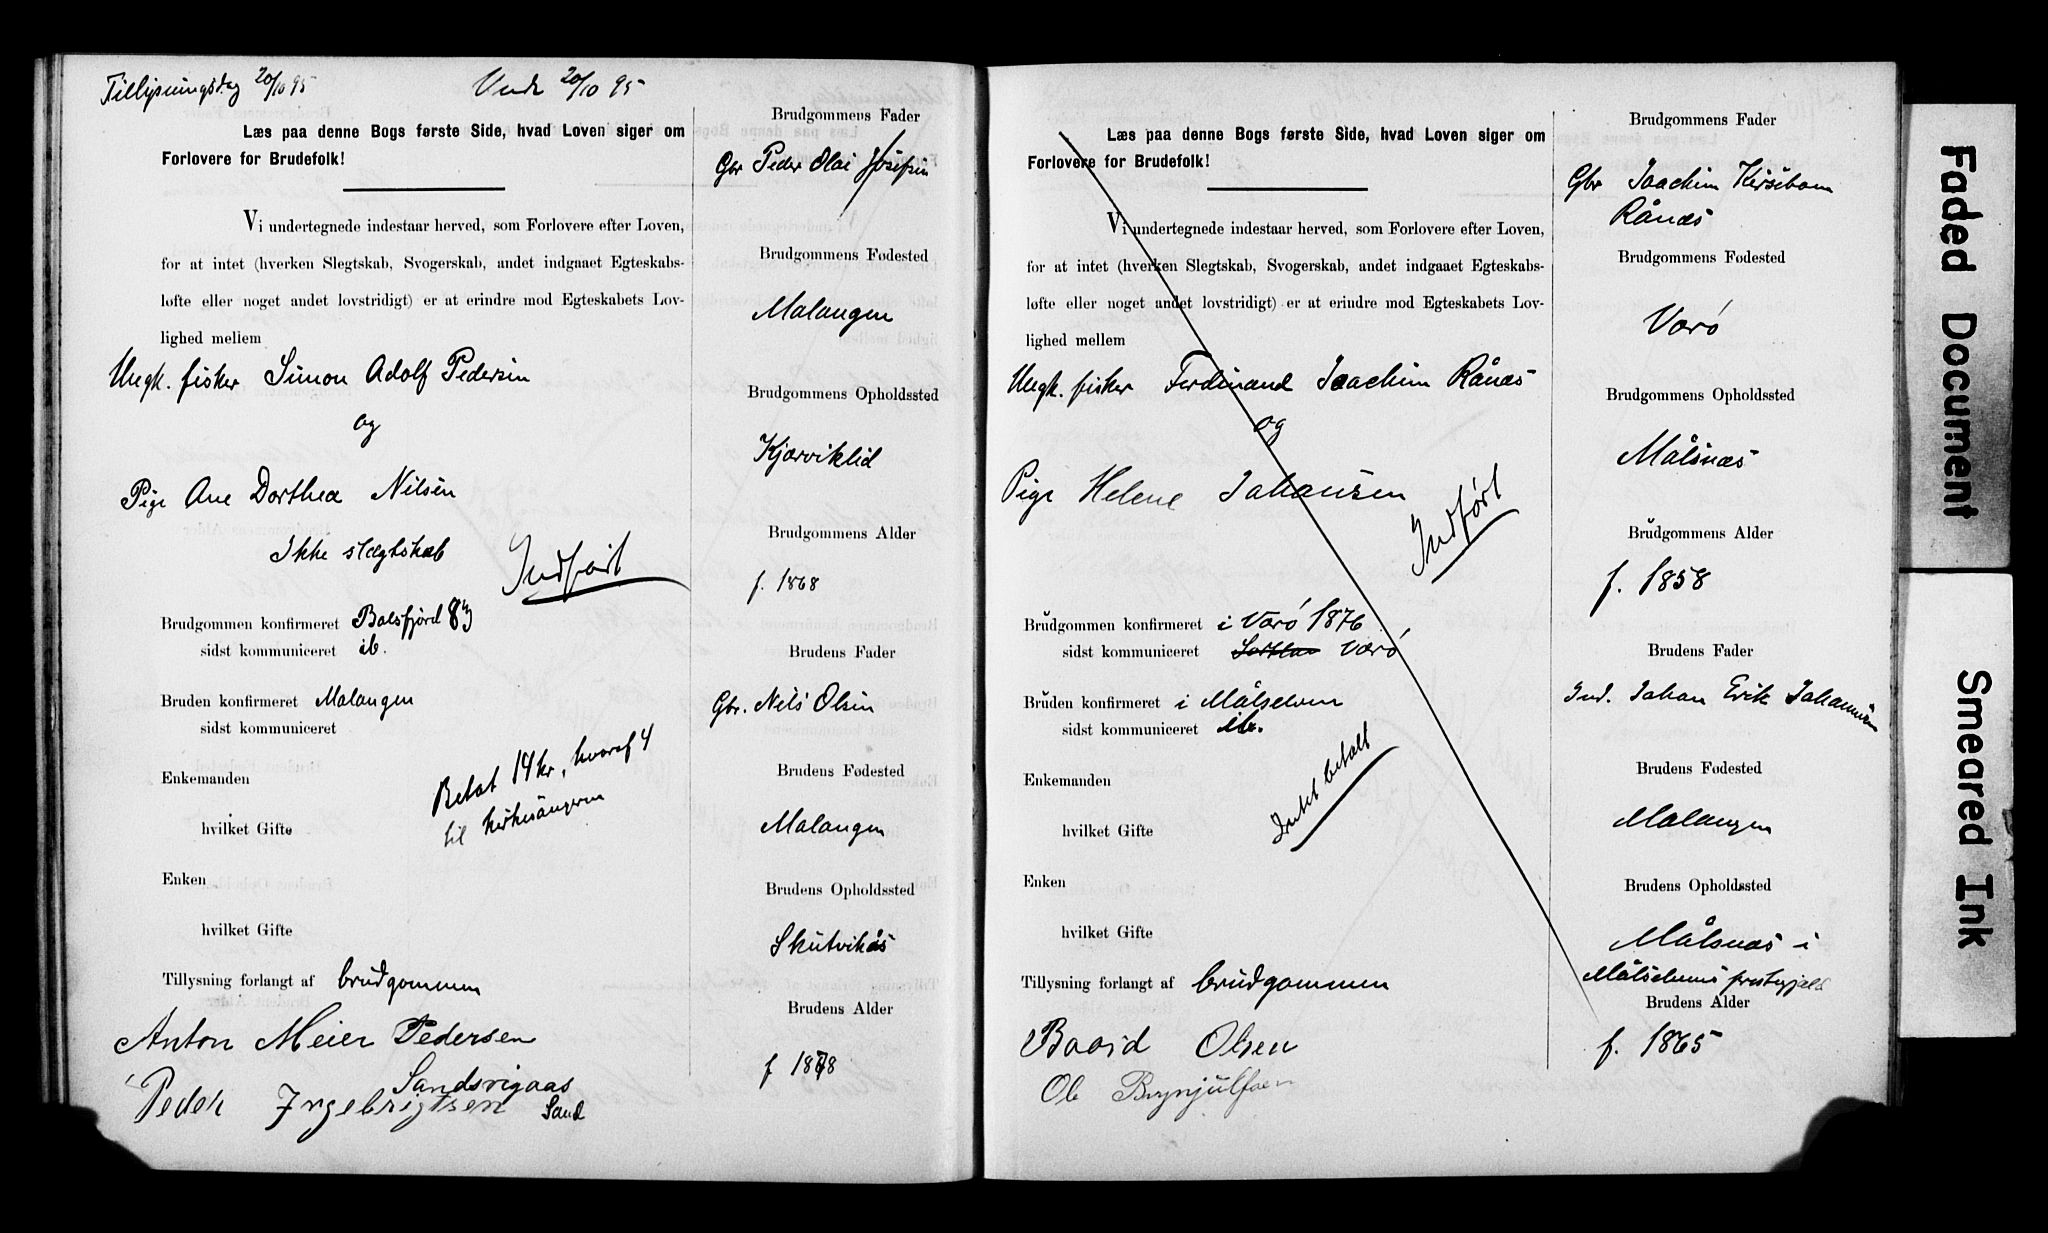 Tillysningsdag 20/10 95
20/10 95
Læs paa denne Bogs første Side, hvad Loven siger om
Forlovere for Brudefolk!
Vi undertegnede indestaar herved, som Forlovere efter Loven,
for at intet (hverken Slegtskab, Svogerskab, andet indgaaet Egteskabs-
løfte eller noget andet lovstridigt) er at erindre mod Egteskabets Lov-
lighed mellem
Ungk. fisker Simon Adolf Pedersen
og
Pige Ane Dorthea Nilsen
Ikke slægtskab
Indført
Brudgommen konfirmeret Balsfjord 83
sidst kommuniceret ib.
Bruden konfirmeret Malangen
sidst kommuniceret
Betalt 14 kr, hvoraf 4
til kirkesangeren
Enkemanden
hvilket Gifte
Enken
hvilket Gifte
Tillysning forlangt af brudgommen
Anton Meier Pedersen
Sandsvigaas
Peder Ingebrigtsen Sand
Brudgommens Fader
Gbr Peder Olai Josefsen
Brudgommens Fødested
Malangen
Brudgommens Opholdssted
Kjærviklid
Brudgommens Alder
f. 1868
Brudens Fader
Gbr. Nils Olsen
Brudens Fødested
Malangen
Brudens Opholdssted
Skutvikås
Brudens Alder
f 1878
Læs paa denne Bogs første Side, hvad Loven siger om
Forlovere for Brudefolk!
Vi undertegnede indestaar herved, som Forlovere efter Loven,
for at intet (hverken Slegtskab, Svogerskab, andet indgaaet Egteskabs-
løfte eller noget andet lovstridigt) er at erindre mod Egteskabets Lov-
lighed mellem
Ungk. fisker Ferdinand Joachim Rånæs
og
Pige Helene Johansen
Indført
Brudgommen konfirmeret i Værø 1876
sidst kommuniceret Værø
Bruden konfirmeret i Målselven
sidst kommuniceret ib.
Intet betalt
Enkemanden
hvilket Gifte
Enken
hvilket Gifte
Tillysning forlangt af brudgommen
Baard Olsen
Ole Brynjulfsen
Brudgommens Fader
Gbr Joachim Kirsebom
Rånæs
Brudgommens Fødested
Værø
Brudgommens Opholdssted
Målsnæs
Brudgommens Alder
f. 1858
Brudens Fader
Ind. Johan Erik Johannesen
Brudens Fødested
Malangen
Brudens Opholdssted
Målsnæs i
Målselvens prestegjeld
Brudens Alder
f. 1865
Faded Document
Smeared Ink